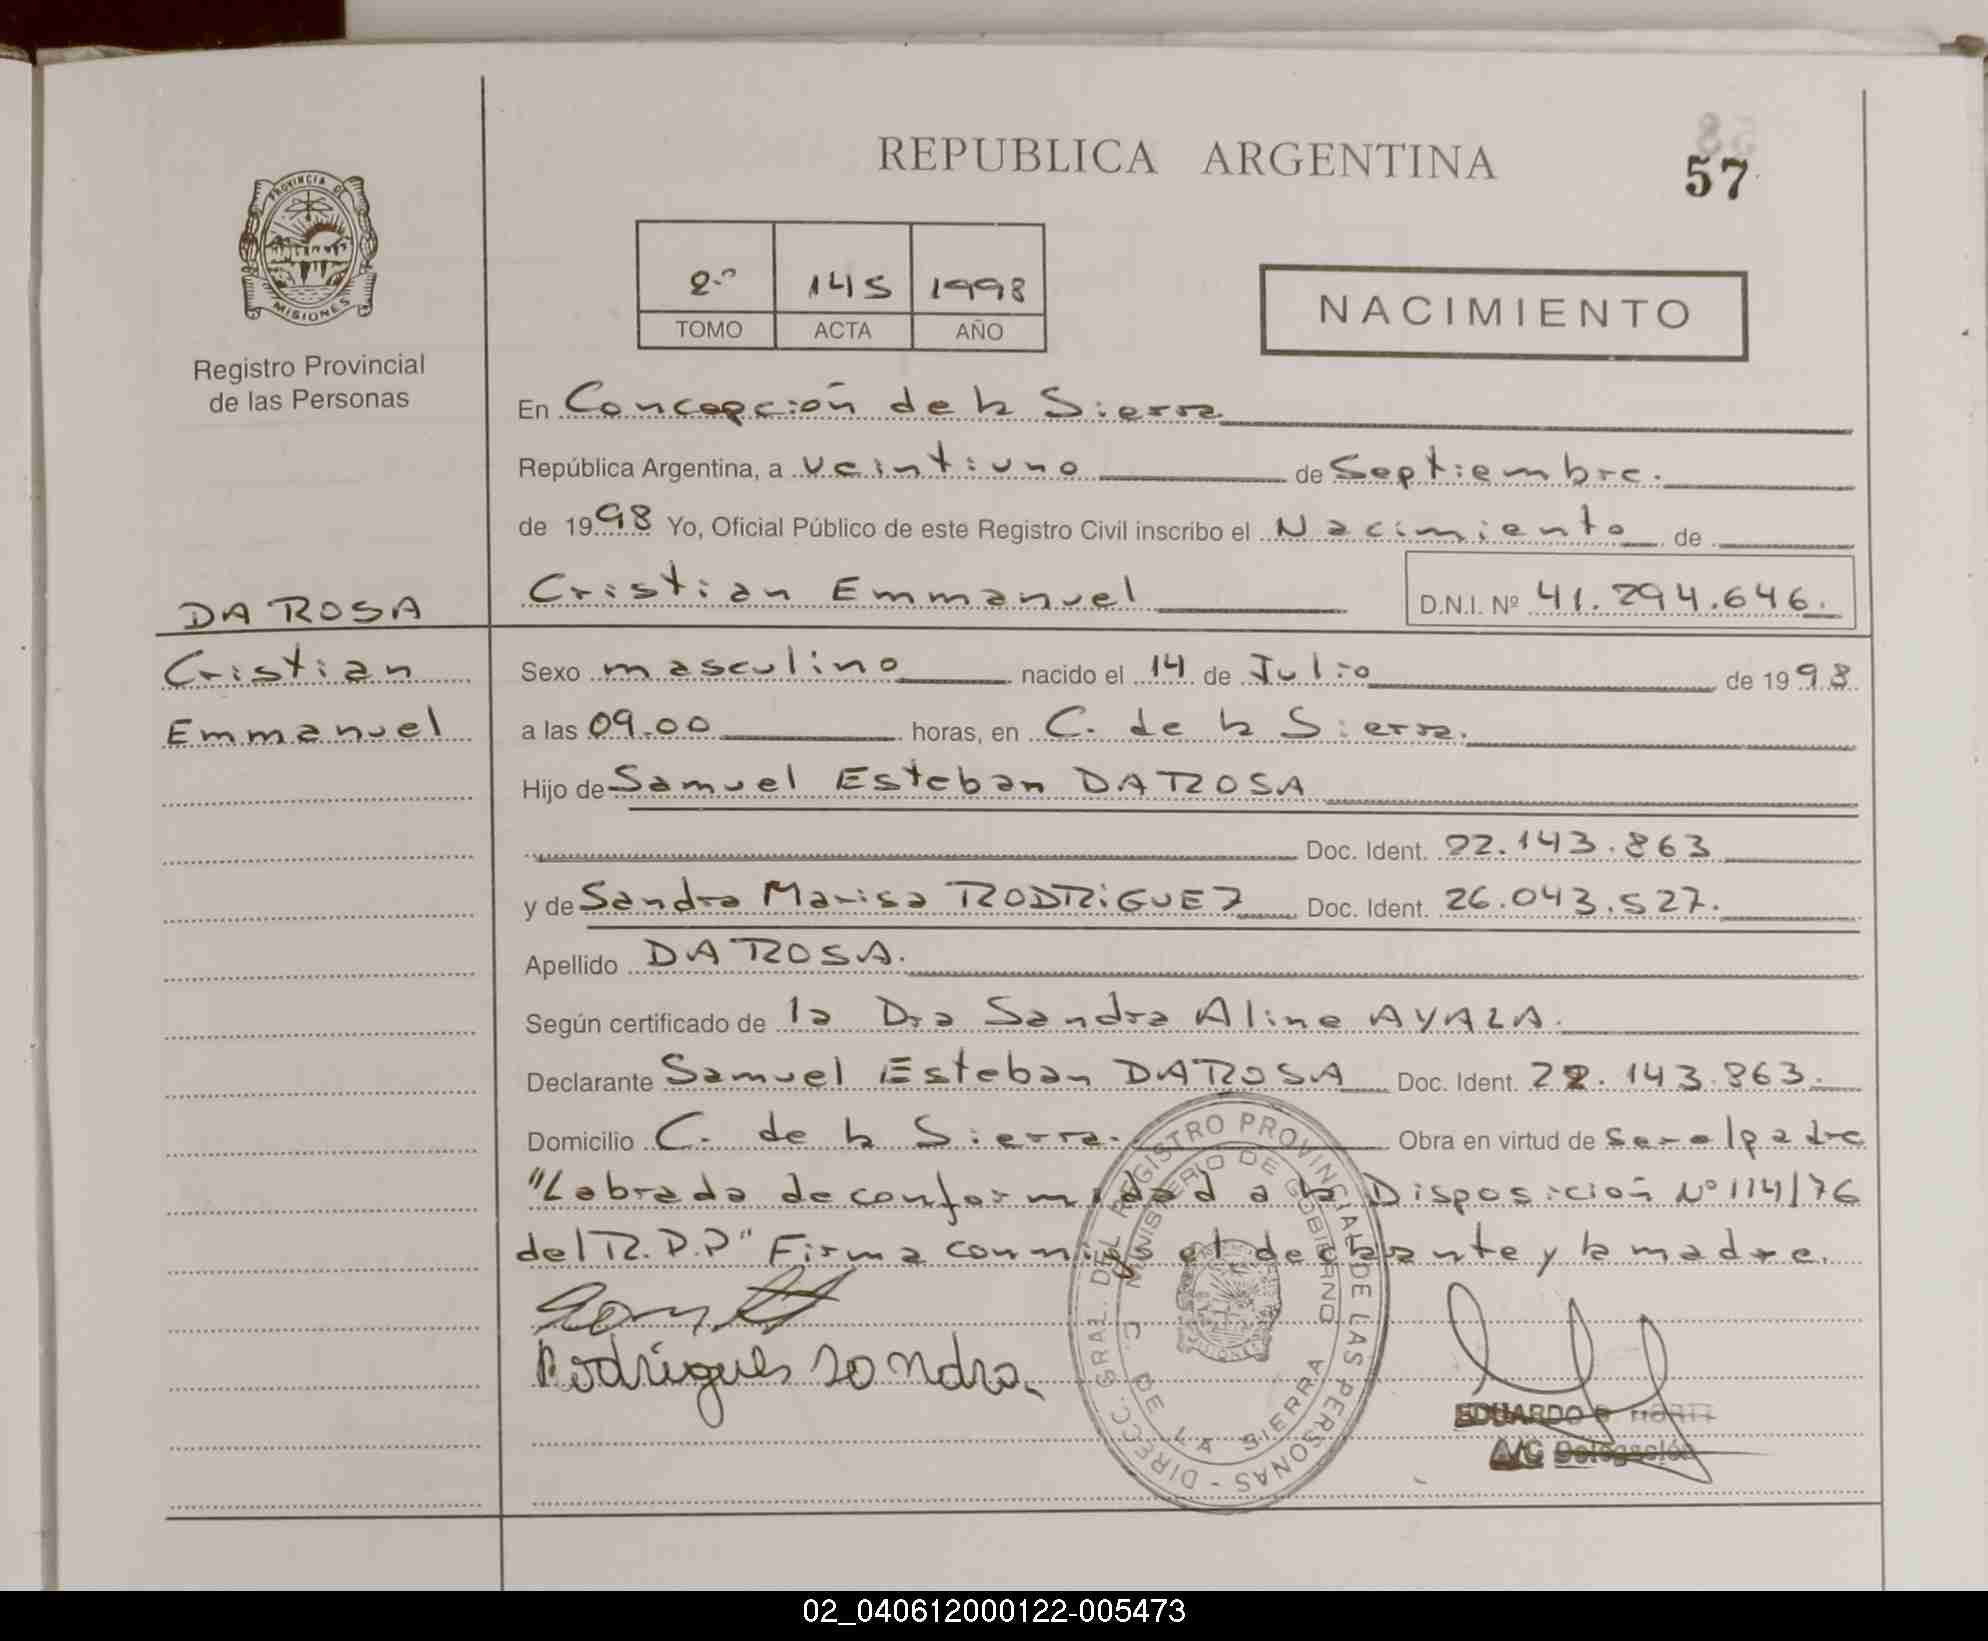 REPUBLICA ARGENTINA
57
PROVINCIA DE
MISIONES
Registro Provincial
de las Personas
2.º 145 1998
TOMO ACTA AÑO
NACIMIENTO
En Concepción de la Sierra
República Argentina, a veintiuno de Septiembre.
de 1998 Yo, Oficial Público de este Registro Civil inscribo el Nacimiento de
Cristian Emmanuel D.N.I. Nº 41.294.646.
DA ROSA
Cristian
Emmanuel
Sexo masculino nacido el 14 de Julio de 1998
a las 09.00 horas, en C. de la Sierra.
Hijo de Samuel Esteban DA ROSA
Doc. Ident. 22.143.863
y de Sandra Marisa RODRIGUEZ Doc. Ident. 26.043.527.
Apellido DA ROSA.
Según certificado de la Dra Sandra Aline AYALA.
Declarante Samuel Esteban DA ROSA Doc. Ident. 22.143.863.
Domicilio C. de la Sierra. Obra en virtud de ser el padre
"Labrada de conformidad a la Disposición Nº 114/76
del R.P.P" Firma conmigo el declarante y la madre.
Rodrigues Sandra.
DIRECC. GRAL. DEL REGISTRO PROVINCIAL DE LAS PERSONAS -
MINISTERIO DE GOBIERNO
C. DE LA SIERRA
EDUARDO
A/C Delegación
02_040612000122-005473